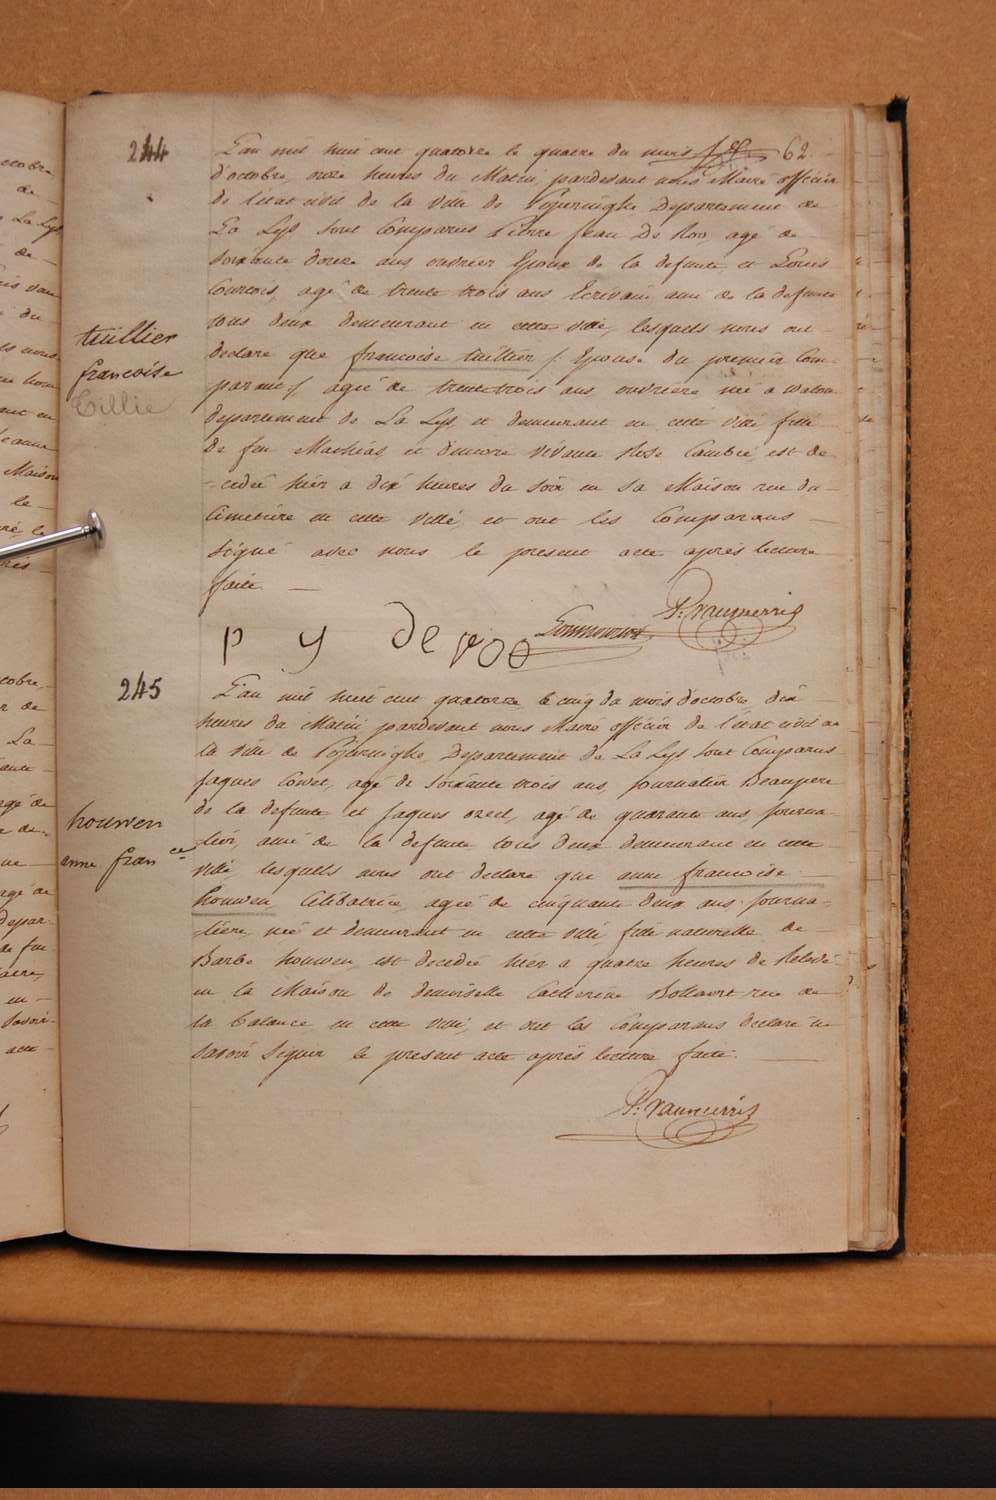 244
L'an mil huit cent quatorze le quatre du mois 62.
d'octobre, onze heures du Matin, pardevant nous Maire officier
de l'etat civil de la ville de Poperinghe Departement de
La Lys sont Comparus Pierre Jean De Roo, agé de
soixante douze ans ouvrier Epoux de la defunte, et Louis
Courtois, agé de trente trois ans Ecrivain, ami de la defunte
tous deux demeurant en cette ville, lesquels nous ont
declaré que francoise tuillier / Epouse du premier Com-
tuillier
francoise
Tillie
parant / agée de trente trois ans, ouvriere née a Watou
departement de La Lys, et demeurant en cette ville fille
de feu Mathias, et d'encore vivante Rose Cambié, est de
-cedée hier a dix heures du soir en sa Maison rue du
Cimetiere en cette ville, et ont les Comparans
signé avec nous le present acte après lecture
faite.
P. Vanmerris
p y de roo
245
L'an mil huit cent quatorze le cinq du mois d'octobre, dix
heures du Matin pardevant nous Maire officier de l'etat civil de
la ville de Poperinghe, Departement de La Lys sont Comparus
Jaques agé de soixante trois ans, journalier Beaupere
de la defunte et Jaques agé de quarante ans, journa-
houwen
anne fran ce
lier, ami de la defunte tous deux demeurant en cette
ville, lesquels nous ont declaré que anne francoise
houwen Célibatrice, agée de cinquante deux ans, journa-
liere, née et demeurant en cette ville, fille naturelle de
Barbe houwen, est decedée hier a quatre heures de Relevée
en la Maison de demoiselle Catherine Bollaert rue de
la balance en cette ville, et ont les Comparans declaré ne
savoir signer le present acte après lecture faite.
P. Vanmerris